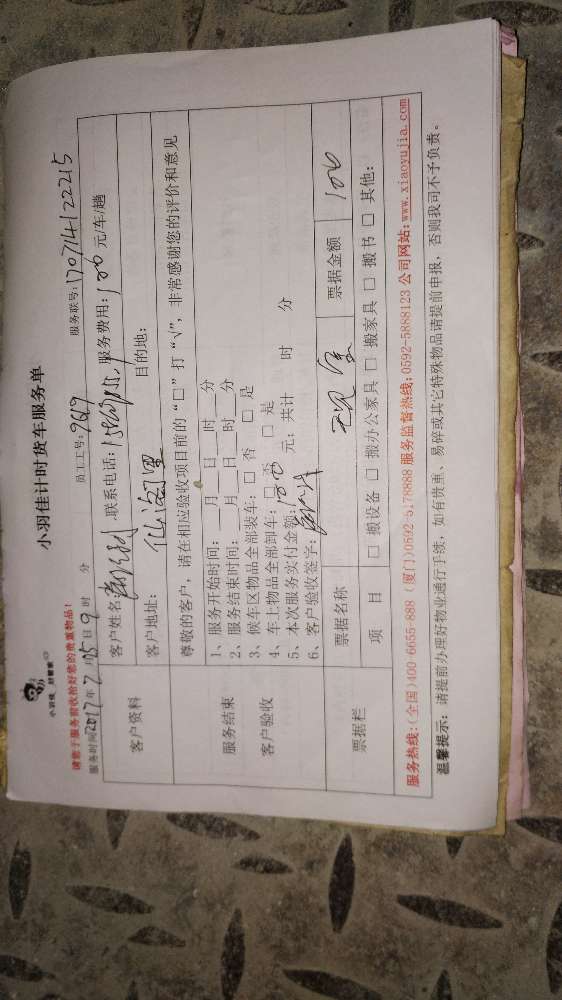 小羽佳 好管家
小羽佳计时货车服务单
请您于服务前收拾好您的贵重物品!
服务时间2017年7月15日9时 分 员工工号:9619 服务联号:170714122215
客户资料
客户姓名: 联系电话: 服务费用:100元/车/趟
客户地址:仙阁里 目的地:
尊敬的客户,请在相应验收项目前的“□”打“√”,非常感谢您的评价和意见
服务结束
客户验收
1、服务开始时间:___月___日___时___分
2、服务结束时间:___月___日___时___分
3、候车区物品全部装车:□否 □是
4、车上物品全部卸车:□否 □是
5、本次服务实付金额:100元;共计 时 分
6、客户验收签字:
票据栏
票据名称 票据金额 100
项 目 □搬设备 □搬办公家具 □搬家具 □搬书 □其他:
服务热线:(全国)400-6655-888 (厦门)0592-5178888 服务监督热线:0592-5888123 公司网站:www.xiaoyujia.com
温馨提示:请提前办理好物业通行手续,如有贵重、易碎或其它特殊物品请提前申报,否则我司不予负责。